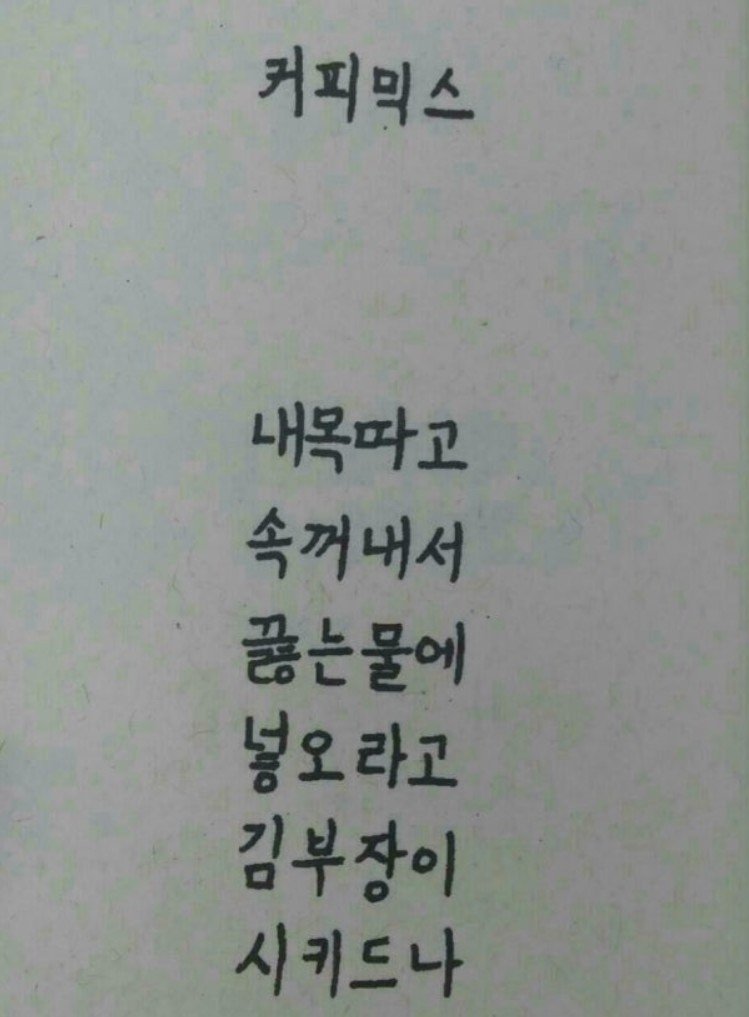 커피믹스
내목따고
속꺼내서
끓는물에
넣오라고
김부장이
시키드나